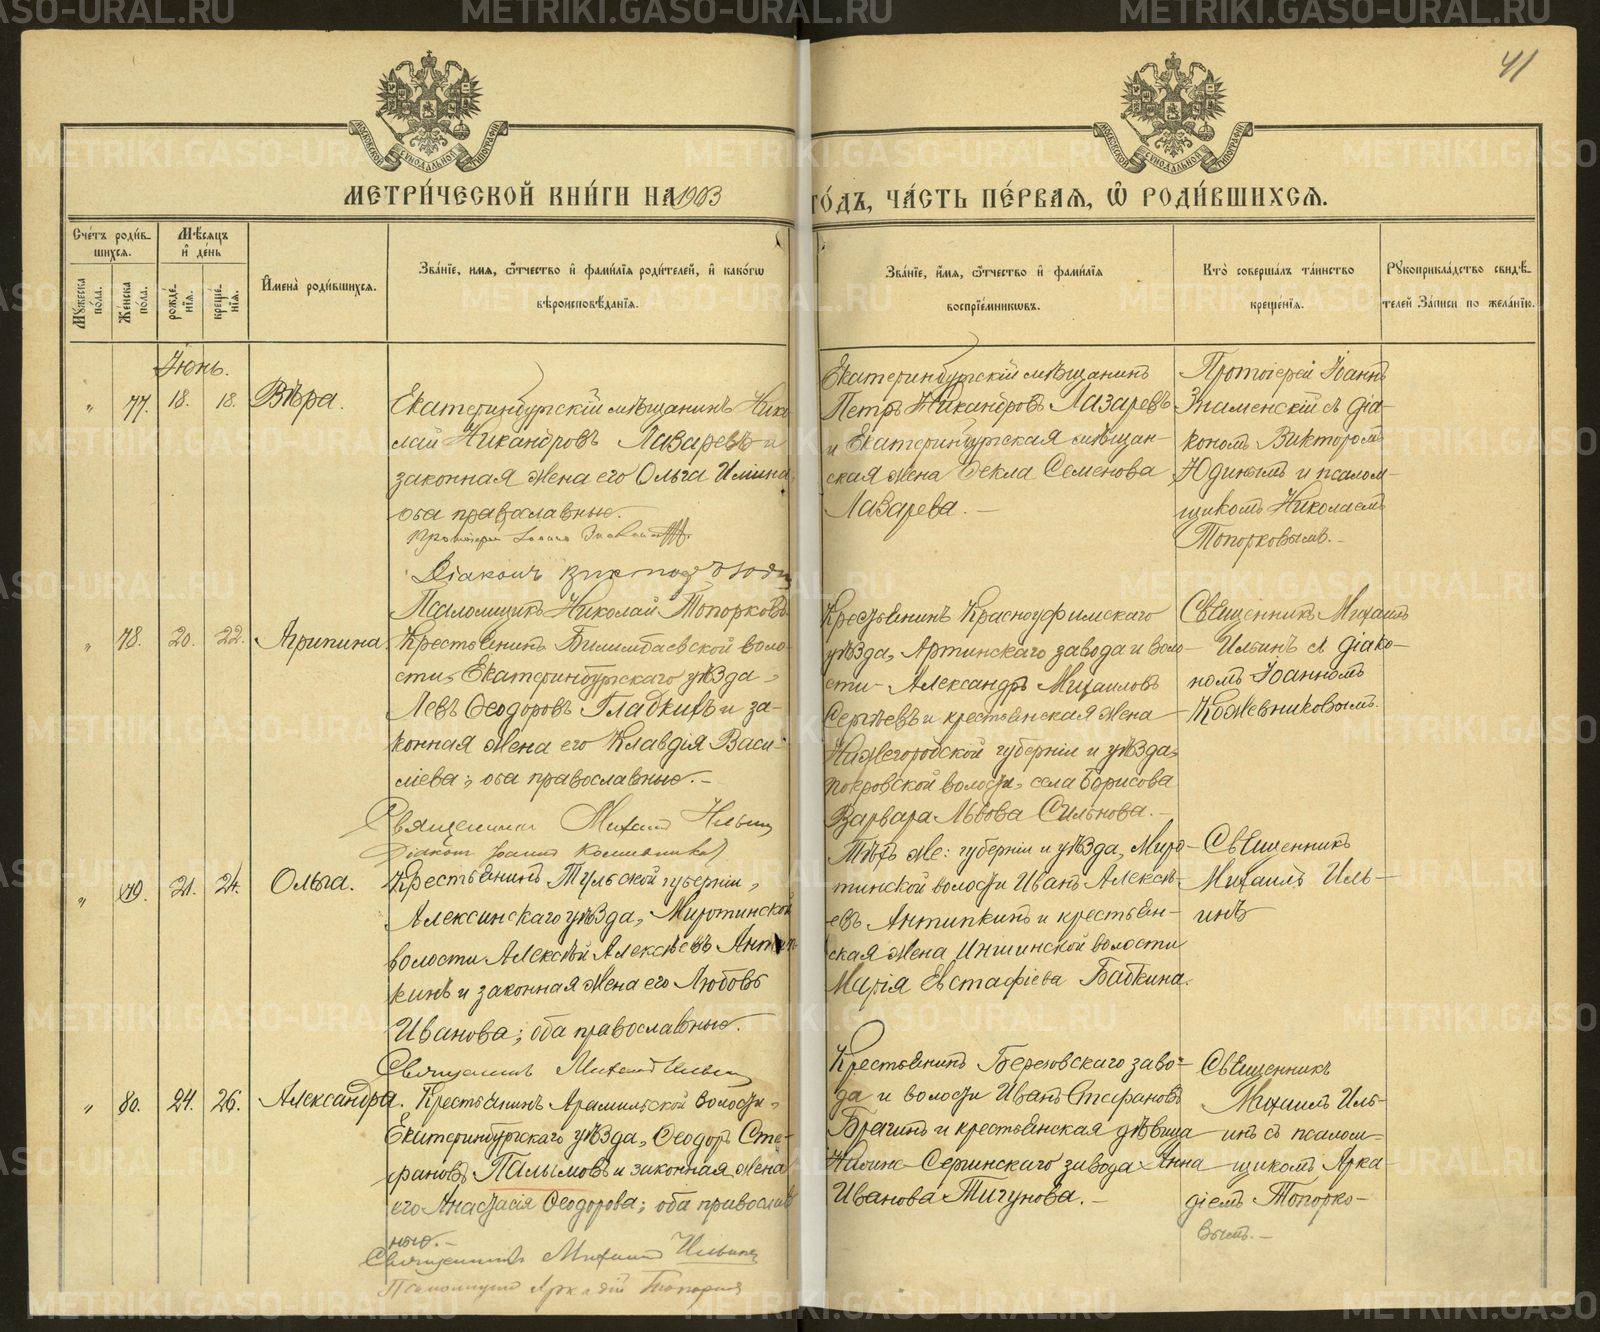 41
МОСКОВСКОЙ СѴНОДАЛЬНОЙ ТИПОГРАФІИ
МОСКОВСКОЙ СѴНОДАЛЬНОЙ ТИПОГРАФІИ
МЕТРИ́ЧЕСКОЙ КНИ́ГИ НА 1903
ГО́ДЪ, ЧА́СТЬ ПЕ́РВАЯ, Ѿ РОДИ́ВШИХСЯ.
Сче́тъ роди́в-
шихся.
Мѣ́сяцъ
и҆ де́нь
Мꙋ́жеска
по́ла.
Же́нска
по́ла.
рожде́-
нїя.
креще́-
нїя.
И҆мена̀ роди́вшихся.
Зва́нїе, имя, ѻ҆́тчество и҆ фами́лїя роди́телей, и҆ како́гѡ
вѣроисповѣ́данїя.
Зва́нїе, и҆́мя, ѻ҆́тчество и҆ фами́лїя
воспрїе́мникѡвъ.
Кто̀ соверша́лъ та́инство
креще́нїя.
Рꙋкоприкла́дство свидѣ́-
телей За́писи по жела́нїю.
Іюнь.
„ 77. 18. 18. Вѣра.
Екатеринбургскій мѣщанинъ Нико
лай Никандровъ Лазаревъ и
законная жена его Ольга Ильина
оба православные.
Протоіерей Іоаннъ Знаменскій
Діаконъ Викторъ Юдинъ
Псаломщикъ Николай Топорковъ
Екатеринбургскій мѣщанинъ
Петръ Никандровъ Лазаревъ
и Екатеринбургская мѣщан-
ская жена Ѳекла Семенова
Лазарева.—
Протоіерей Іоаннъ
Знаменскій съ діа-
кономъ Викторомъ
Юдинымъ и псалом-
щикомъ Николаемъ
Топорковымъ.-
„ 78. 20. 22. Агрипина.
Крестьянинъ Билимбаевской воло-
сти, Екатеринбургскаго уѣзда,
Левъ Ѳеодоровъ Гладкихъ и за-
конная жена его Клавдія Васи-
ліева; оба православные.-
Священникъ Михаилъ Ильинъ
Діаконъ Іоаннъ Кожевниковъ
Крестьянинъ Красноуфимскаго
уѣзда, Артинскаго завода и воло-
сти- Александръ Михаиловъ
Сергѣевъ и крестьянская жена
Нижегородской губерніи и уѣзда,
покровской волости, села Борисова
Варвара Львова Сильнова.-
Священникъ Михаилъ
Ильинъ съ діако-
номъ Іоанномъ
Кожевниковымъ.
„ 79. 21. 24. Ольга.
Крестьянинъ Тульской губерніи,
Алексинскаго уѣзда, Миротинской
волости Алексѣй Алексѣевъ Антип-
кинъ и законная жена его Любовь
Иванова; оба православные.
Священникъ Михаилъ Ильинъ
Тѣхъ же: губерніи и уѣзда, Миро-
тинской волости Иванъ Алексѣ-
евъ Антипкинъ и крестьян-
ская жена Иншинской волости
Марія Евстафіева Бабкина.
Священникъ
Михаилъ Иль-
инъ
„ 80. 24. 26. Александра.
Крестьянинъ Арамильской волости,
Екатеринбургскаго уѣзда, Ѳеодоръ Сте-
фановъ Палымовъ и законная жена
его Анастасія Ѳеодорова; оба православ
ные.-
Священникъ Михаилъ Ильинъ
Псаломщикъ Аркадій Топорковъ
Крестьянинъ Березовскаго заво-
да и волости Иванъ Стефановъ
Брагинъ и крестьянская дѣвица
Нижне-Сергинскаго завода Анна
Иванова Тигунова.-
Священникъ
Михаилъ Иль-
инъ съ псалом-
щикомъ Арка-
діемъ Топорко-
вымъ.-
METRIKI.GASO-URAL.RU